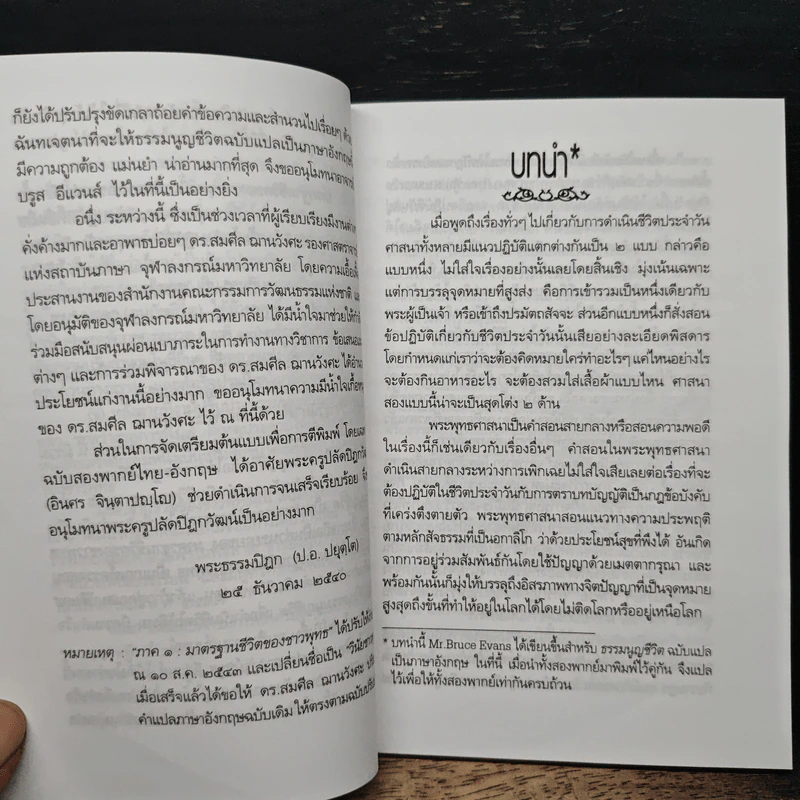 ก็ยังได้ปรับปรุงขัดเกลาถ้อยคำข้อความและสำนวนไปเรื่อยๆ ด้วย
ฉันทเจตนาที่จะให้ธรรมนูญชีวิตฉบับแปลเป็นภาษาอังกฤษนี้
มีความถูกต้อง แม่นยำ น่าอ่านมากที่สุด จึงขออนุโมทนาอาจารย์
บรูส อีแวนส์ ไว้ในที่นี้เป็นอย่างยิ่ง
อนึ่ง ระหว่างนี้ ซึ่งเป็นช่วงเวลาที่ผู้เรียบเรียงมีงาน
คั่งค้างมากและอาพาธบ่อยๆ ดร.สมศีล ฌานวังศะ รองศาสตราจารย์
แห่งสถาบันภาษา จุฬาลงกรณ์มหาวิทยาลัย โดยความเอื้อเฟื้อ
ประสานงานของสำนักงานคณะกรรมการวัฒนธรรมแห่งชาติ
โดยอนุมัติของจุฬาลงกรณ์มหาวิทยาลัย ได้มีน้ำใจมาช่วยให้
ร่วมมือสนับสนุนผ่อนเบาภาระในการทำงานทางวิชาการ ข้อเสนอแนะ
ต่างๆ และการร่วมพิจารณาของ ดร.สมศีล ฌานวังศะ ได้อำนวย
ประโยชน์แก่งานนี้อย่างมาก ขออนุโมทนาความมีน้ำใจเกื้อกูล
ของ ดร.สมศีล ฌานวังศะ ไว้ ณ ที่นี้ด้วย
ส่วนในการจัดเตรียมต้นแบบเพื่อการตีพิมพ์ โดยเฉพาะ
ฉบับสองพากย์ไทย-อังกฤษ ได้อาศัยพระครูปลัดปิฎกวัฒน์
(อินศร จินฺตาปญฺโญ) ช่วยดำเนินการจนเสร็จเรียบร้อย จึง
อนุโมทนาพระครูปลัดปิฎกวัฒน์เป็นอย่างมาก
พระธรรมปิฎก (ป.อ. ปยุตฺโต)
๒๕ ธันวาคม ๒๕๔๐
หมายเหตุ : "ภาค ๑ : มาตรฐานชีวิตของชาวพุทธ" ได้ปรับให้
ณ ๑๐ ส.ค. ๒๕๔๓ และเปลี่ยนชื่อเป็น "วินัยชาวพุทธ
เมื่อเสร็จแล้วได้ขอให้ ดร.สมศีล ฌานวังศะ
คำแปลภาษาอังกฤษฉบับเดิม ให้ตรงตามฉบับ
บทนำ*
เมื่อพูดถึงเรื่องทั่วๆ ไปเกี่ยวกับการดำเนินชีวิตประจำวัน
ศาสนาทั้งหลายมีแนวปฏิบัติแตกต่างกันเป็น ๒ แบบ กล่าวคือ
แบบหนึ่ง ไม่ใส่ใจเรื่องอย่างนั้นเลยโดยสิ้นเชิง มุ่งเน้นเฉพาะ
แต่การบรรลุจุดหมายที่สูงส่ง คือการเข้ารวมเป็นหนึ่งเดียวกับ
พระผู้เป็นเจ้า หรือเข้าถึงปรมัตถสัจจะ ส่วนอีกแบบหนึ่งก็สั่งสอน
ข้อปฏิบัติเกี่ยวกับชีวิตประจำวันนั้นเสียอย่างละเอียดพิสดาร
โดยกำหนดแก่เราว่าจะต้องคิดหมายใครทำอะไรๆ แค่ไหนอย่างไร
จะต้องกินอาหารอะไร จะต้องสวมใส่เสื้อผ้าแบบไหน ศาสนา
สองแบบนี้น่าจะเป็นสุดโต่ง ๒ ด้าน
พระพุทธศาสนาเป็นคำสอนสายกลางหรือสอนความพอดี
ในเรื่องนี้ก็เช่นเดียวกับเรื่องอื่นๆ คำสอนในพระพุทธศาสนา
ดำเนินสายกลางระหว่างการเพิกเฉยไม่ใส่ใจเสียเลยต่อเรื่องที่จะ
ต้องปฏิบัติในชีวิตประจำวันกับการตราบทบัญญัติเป็นกฎข้อบังคับ
ที่เคร่งตึงตายตัว พระพุทธศาสนาสอนแนวทางความประพฤติ
ตามหลักสัจธรรมที่เป็นอกาลิโก ว่าด้วยประโยชน์สุขที่พึงได้ อันเกิด
จากการอยู่ร่วมสัมพันธ์กันโดยใช้ปัญญาด้วยเมตตากรุณา และ
พร้อมกันนั้นก็มุ่งให้บรรลุถึงอิสรภาพทางจิตปัญญาที่เป็นจุดหมาย
สูงสุดถึงขั้นที่ทำให้อยู่ในโลกได้โดยไม่ติดโลกหรืออยู่เหนือโลก
* บทนำนี้ Mr.Bruce Evans ได้เขียนขึ้นสำหรับ ธรรมนูญชีวิต ฉบับแปล
เป็นภาษาอังกฤษ ในที่นี้ เมื่อนำทั้งสองพากย์มาพิมพ์ไว้คู่กัน จึงแปล
ไว้เพื่อให้ทั้งสองพากย์เท่ากันครบถ้วน